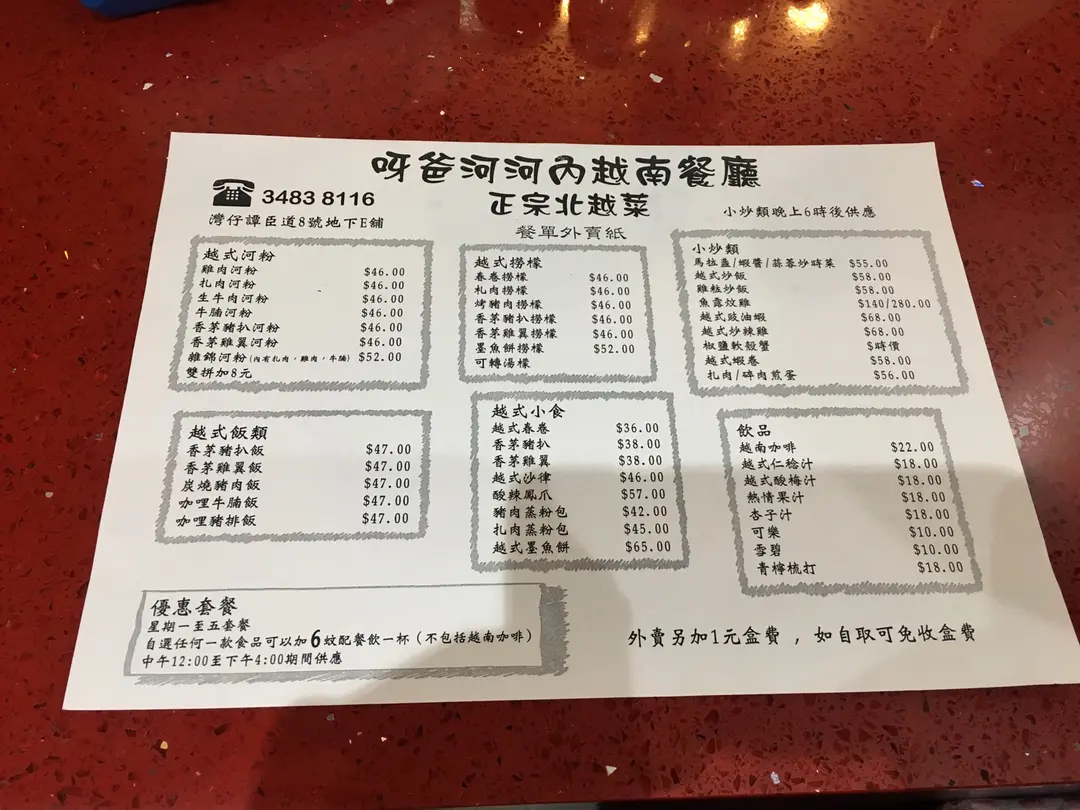 呀爸河河內越南餐廳
正宗北越菜
餐單外賣紙
☎ 3483 8116
灣仔譚臣道8號地下E舖
小炒類晚上6時後供應
越式河粉
雞肉河粉 $46.00
扎肉河粉 $46.00
生牛肉河粉 $46.00
牛腩河粉 $46.00
香茅豬扒河粉 $46.00
香茅雞翼河粉 $46.00
雜錦河粉(內有扎肉，雞肉，牛腩) $52.00
雙拼加8元
越式撈檬
春卷撈檬 $46.00
札肉撈檬 $46.00
烤豬肉撈檬 $46.00
香茅豬扒撈檬 $46.00
香茅雞翼撈檬 $46.00
墨魚餅撈檬 $52.00
可轉湯檬
小炒類
馬拉盞/蝦醬/蒜蓉炒時菜 $55.00
越式炒飯 $58.00
雞粒炒飯 $58.00
魚露炆雞 $140/280.00
越式豉油蝦 $68.00
越式炒辣雞 $68.00
椒鹽軟殼蟹 $時價
越式蝦卷 $58.00
扎肉/碎肉煎蛋 $56.00
越式飯類
香茅豬扒飯 $47.00
香茅雞翼飯 $47.00
炭燒豬肉飯 $47.00
咖哩牛腩飯 $47.00
咖哩豬排飯 $47.00
越式小食
越式春卷 $36.00
香茅豬扒 $38.00
香茅雞翼 $38.00
越式沙律 $46.00
酸辣鳳爪 $57.00
豬肉蒸粉包 $42.00
扎肉蒸粉包 $45.00
越式墨魚餅 $65.00
飲品
越南咖啡 $22.00
越式仁稔汁 $18.00
越式酸梅汁 $18.00
熱情果汁 $18.00
杏子汁 $18.00
可樂 $10.00
雪碧 $10.00
青檸梳打 $18.00
優惠套餐
星期一至五套餐
自選任何一款食品可以加6蚊配餐飲一杯（不包括越南咖啡）
中午12:00至下午4:00期間供應
外賣另加1元盒費 ，如自取可免收盒費